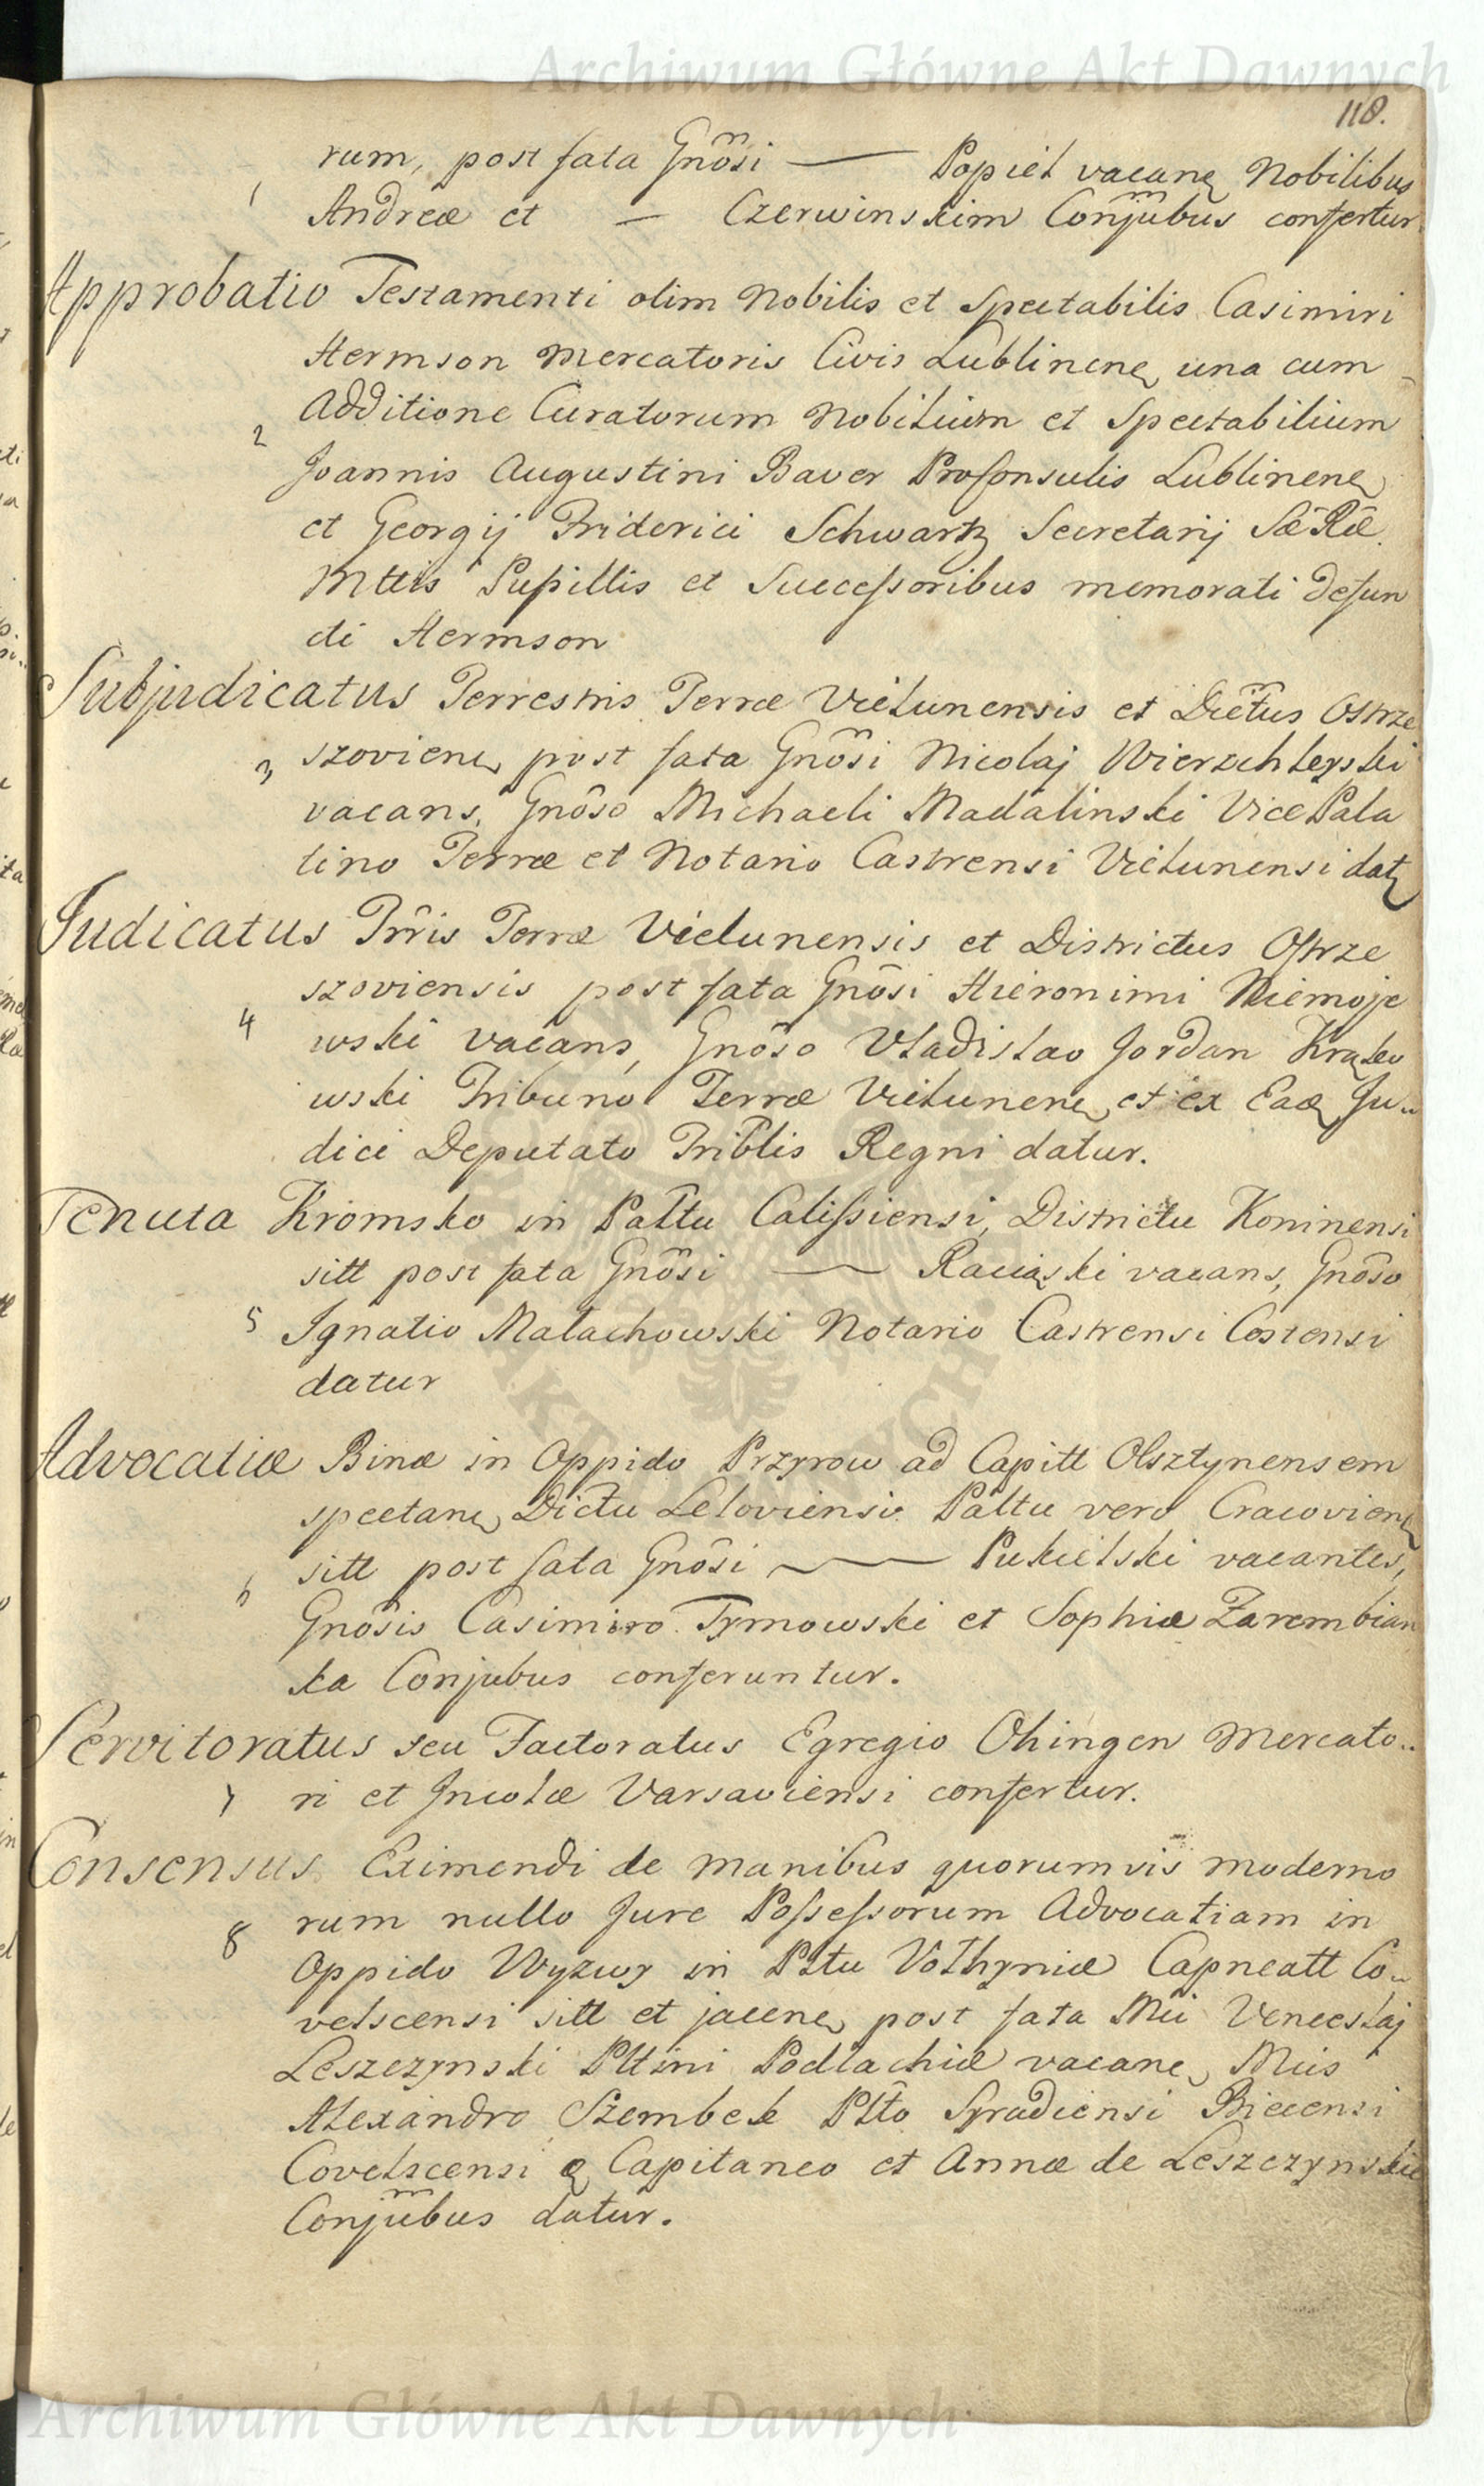 Archiwum Główne Akt Dawnych
118.
rum, post fata Gnôsi — Popiel vacanę Nobilibus
1 Andreæ et — Czerwinskim Conjũbus confertur.
Approbatio Testamenti olim Nobilis et Spectabilis Casimiri
Hermson Mercatoris Civis Lublinenę una cum
2 Additione Curatorum Nobilium et Spectabilium
Joannis Augustini Baver Proconsulis Lublinenę
et Georgij Friderici Schwartz Secretarij Sæ Ræ
Mttis Pupillis et Successoribus memorati defun
cti Hermson
Subjudicatus Terrestris Terræ Vielunensis et Dictus Ostrze
3 szovienę post fata Gnôsi Nicolaj Wierzchleyski
vacans, Gnôso Michaeli Madalinski Vice Pala
tino Terræ et Notario Castrensi Vielunensi datę
Judicatus Trris Terræ Vielunensis et Districtus Ostrze
szoviensis post fata Gnôsi Hieronimi Niemoje
4 wski vacans, Gnôso Vladislao Jordan Krąko
wski Tribuno Terræ Vielunenę et ex Eaę Ju..
dici Deputato Triblis Regni datur.
Tenuta Kromsko in Paltu Calissiensi, Districtu Koninensi
sitt post fata Gnôsi — Raciąski vacans, Gnôso
5 Ignatio Malachowski Notario Castrensi Costensi
datur
Advocatiæ Binæ in Oppido Przyrow ad Capitt Olsztynensem
spectanę Dictu Leloviensi Paltu vero Cracovienę
6 sitt post fata Gnôsi — Pukielski vacantes,
Gnôsis Casimiro Tymowski et Sophiæ Zarembian
ka Conjubus conferuntur.
Servitoratus seu Factoratus Egregio Ohingen Mercato..
7 ri et Incolæ Varsaviensi confertur.
Consensus Eximendi de manibus quorumvis moderno
8 rum nullo Jure Possessorum Advocatiam in
Oppido Wyzwy in Pltu Volhyniæ Capneatt Co..
velscensi sitt et jacenę post fata Mci Venceslaj
Leszczynski Pltini Podlachiæ vacanę, Mcis
Alexandro Szembek Pltô Syradiensi Biecensi
Covelscensi ę Capitaneo et Annæ de Leszczynskie
Conjũbus datur.
Archiwum Główne Akt Dawnych